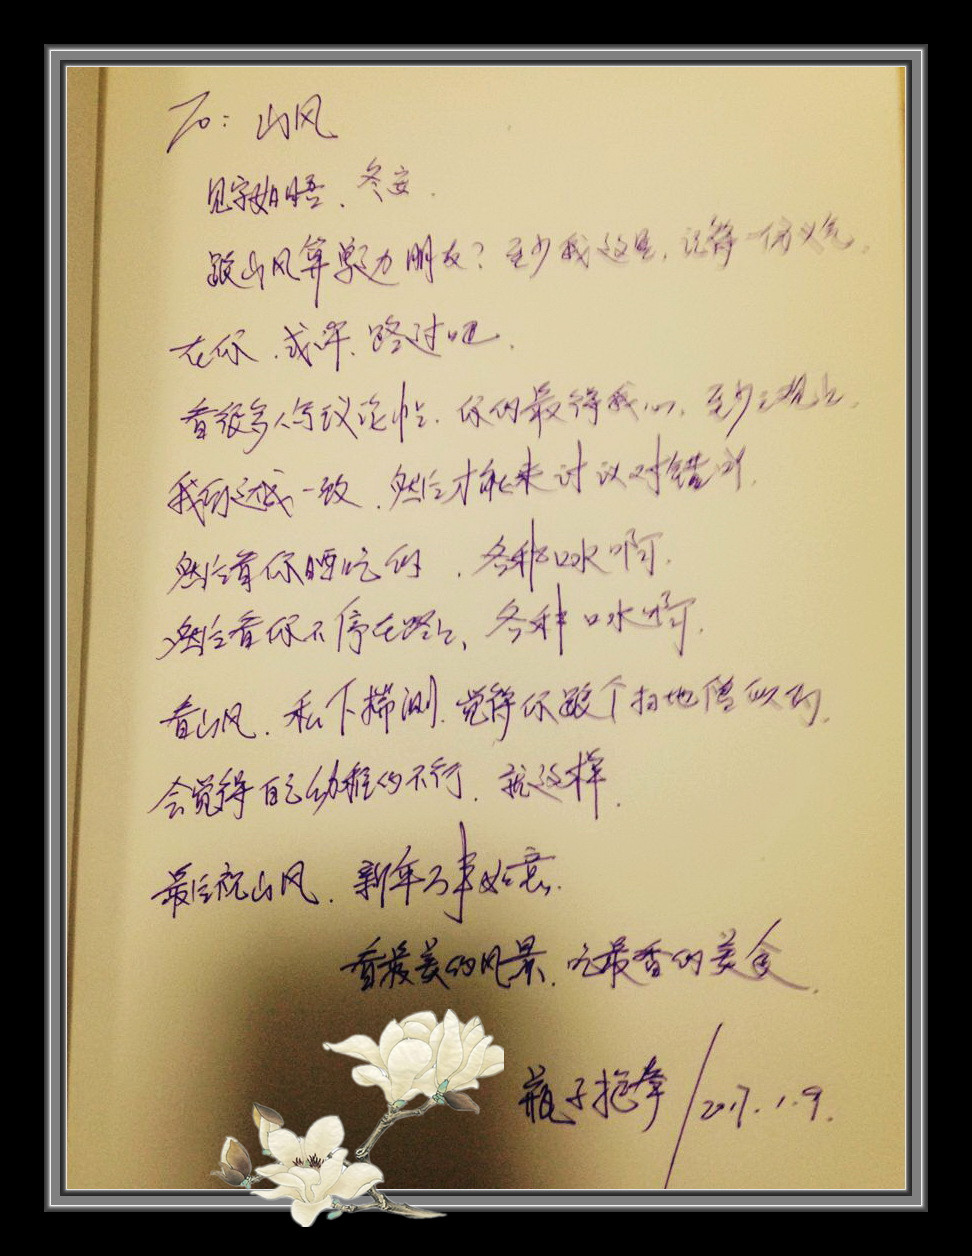 To: 山风
见字如晤、冬安.
跟山风算鼎力朋友?至少我这里,记得一份义气。
在你.或许.路过吧.
看很多人写议论帖.你的最得我心.至少三观上.
我们达成一致.然后才能来讨议对错
然后看你晒吃的.各种口水啊.
然后看你不停在路上、各种口水啊.
看山风.私下揣测.觉得你跟个扫地僧似的.
会觉得自己幼稚的不行.就这样.
最后祝山风.新年万事如意.
看最美的风景.吃最香的美食.
瓶子抱拳/2017.1.9.